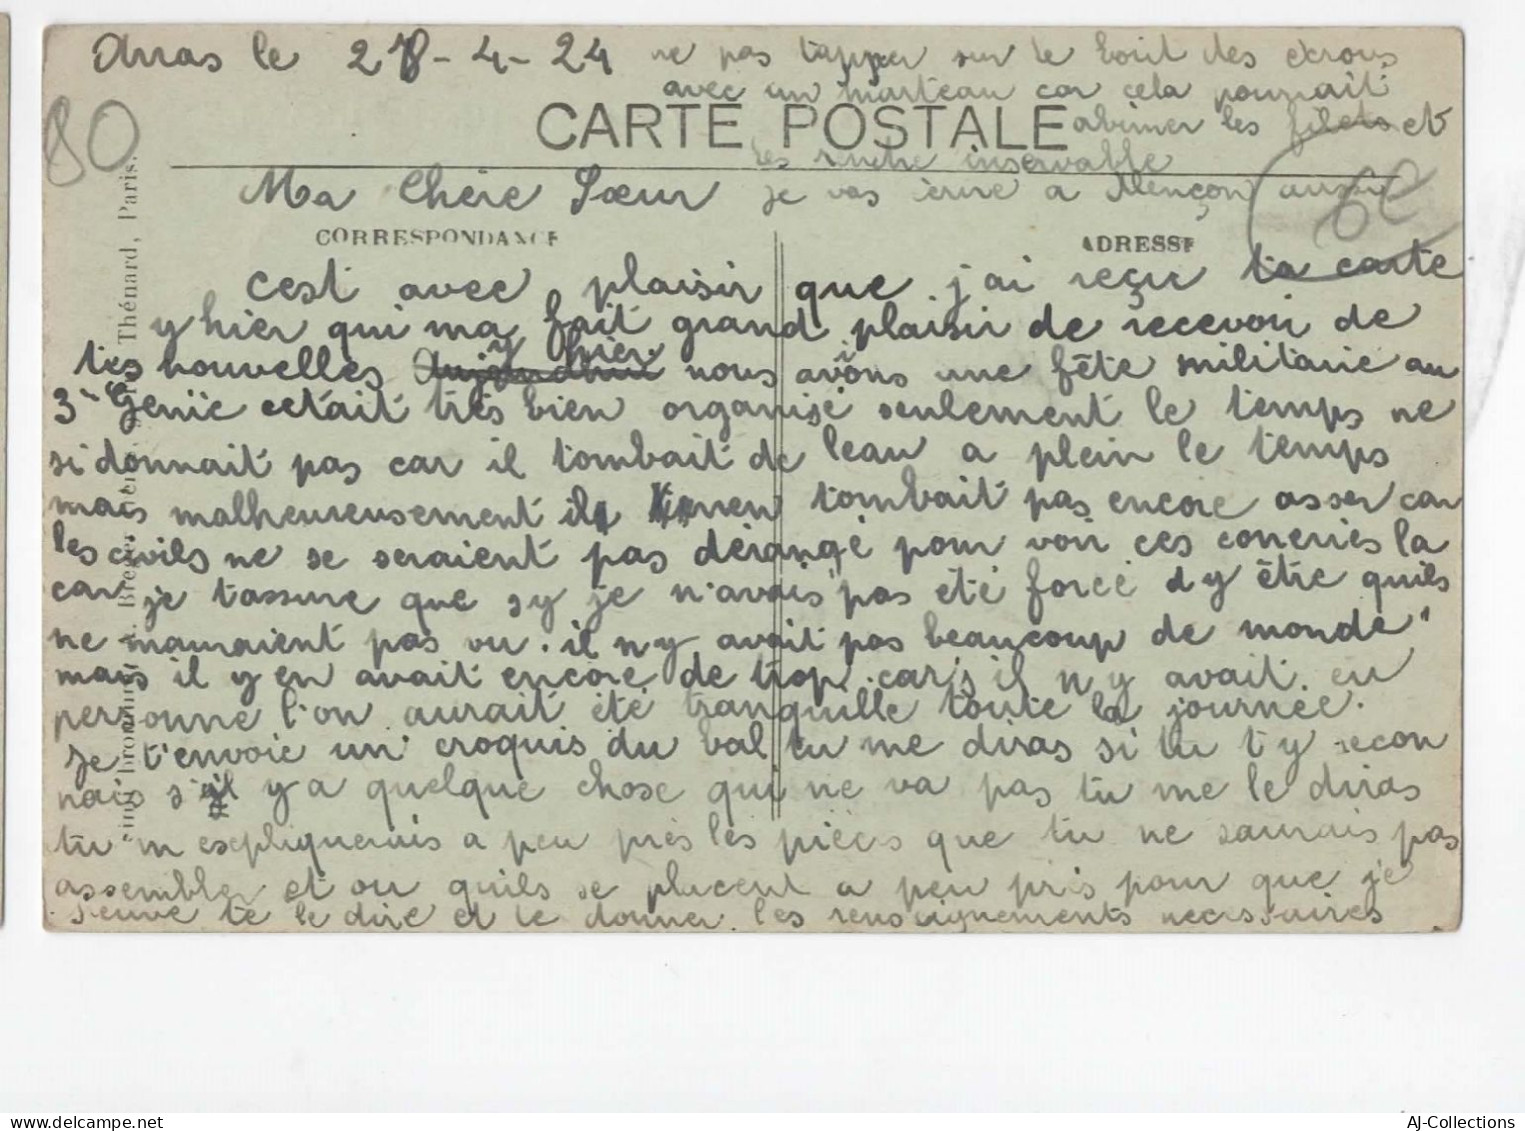 Arras le 28-4-24
ne pas tapper sur le bout des écrous
avec un marteau car cela pourrait
abimer les filets et
les rendre inservable
je vas écrire a Alençon aussi
80
6E
CARTE POSTALE
CORRESPONDANCE
ADRESSE
Thénard, Paris.
Ma Chère Sœur
cest avec plaisir que j'ai reçu ta carte
y hier qui ma fait grand plaisir de recevoir de
tes nouvelles y hier nous avions une fête militaire au
3e Génie cetait très bien organisé seulement le temps ne
si donnait pas car il tombait de leau a plein le temps
mais malheureusement il nen tombait pas encore asser car
les civils ne se seraient pas dérangé pour voir ces coneries la
car je tassure que sy je n'avais pas été forcé d y être quils
ne mauraient pas vu. il n y avait pas beaucoup de monde
mais il y en avait encore de trop. car s il n y avait eu
personne l'on aurait été tranquille toute la journée.
Je t'envoie un croquis du bal tu me diras si tu t y recon
nais s'il y a quelque chose qui ne va pas tu me le diras
tu m expliquerais a peu près les pièces que tu ne saurais pas
assembler et ou quils se placent a peu près pour que je
te le dire et te donner les renseignements necessaires
AJ-Collections